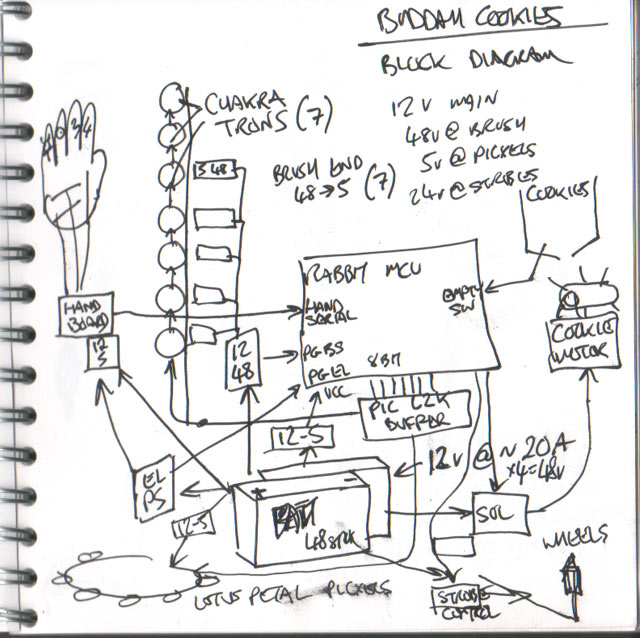 BUDDAH COOKIES
BLOCK DIAGRAM
12V MAIN
48V @ BRUSH
5V @ PICKELS
24V @ STROBES
CHAKRA
TRONS (7)
BRUSH END
48→5 (7)
5 48
COOKIES
RABBIT MCU
HAND
SERIAL
EMPTY
SW
PGBS
PGEL
8BIT
VCC
HAND
BOARD
12
5
12
48
COOKIE
MOTOR
PIC CLK
BUFFER
12-5
12V @ ~ 20A
x4=48V
EL
PS
12-5
BATT
48STK
SOL
WHEELS
LOTUS PETAL PICKELS
STROBE
CONTROL